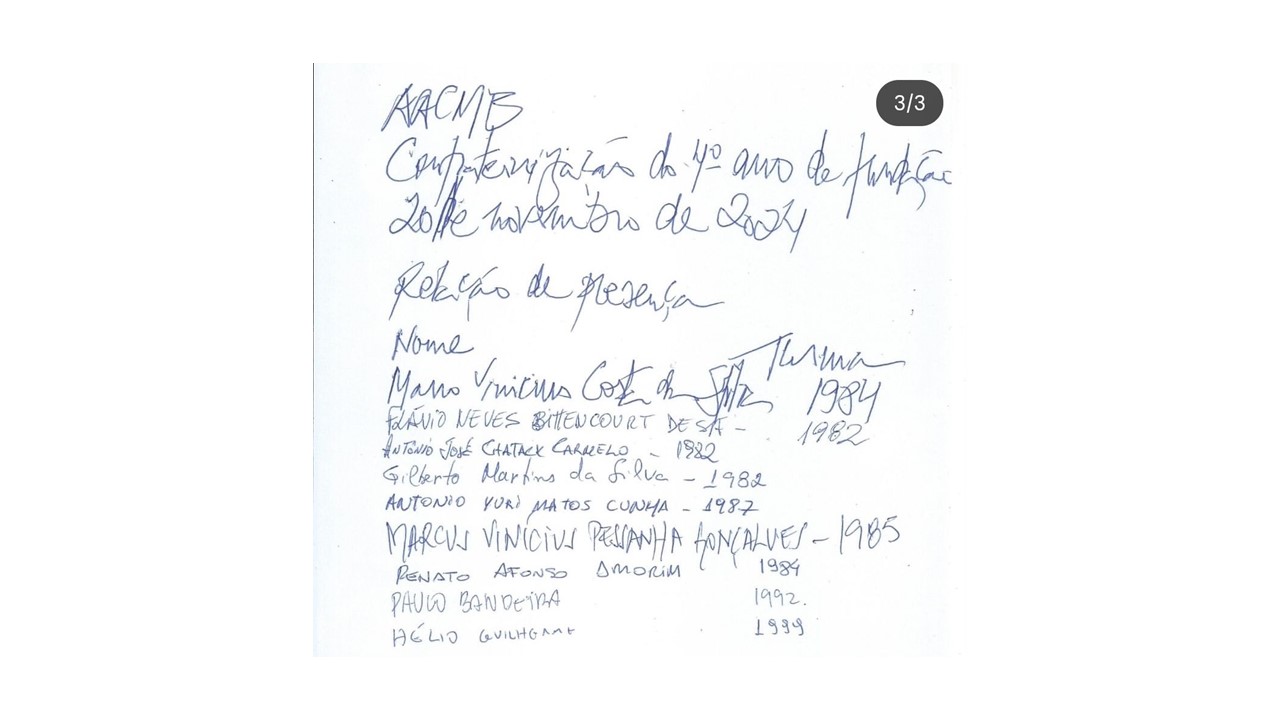 3/3
AACMB
Confraternização do 4º ano de fundação
20 de novembro de 2024
Relação de presença
Nome Turma
Mario Vinicius Costa da Silva 1984
FLÁVIO NEVES BITTENCOURT DE SÁ - 1982
ANTONIO JOSÉ CHATACK CARMELO - 1982
Gilberto Martins da Silva - 1982
ANTONIO YURI MATOS CUNHA - 1987
MARCUS VINICIUS PESSANHA GONÇALVES - 1985
RENATO AFONSO AMORIM 1984
PAULO BANDEIRA 1992.
HÉLIO GUILHERME 1999